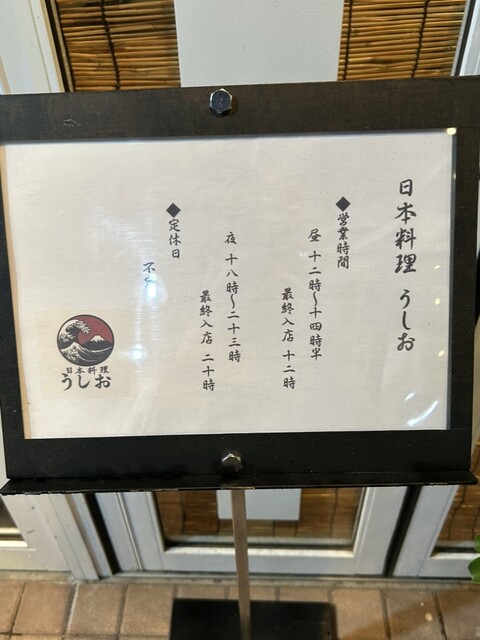 日本料理 うしお
◆営業時間
昼 十二時〜十四時半
最終入店 十二時
夜 十八時〜二十三時
最終入店 二十時
◆定休日
不
日本料理
うしお